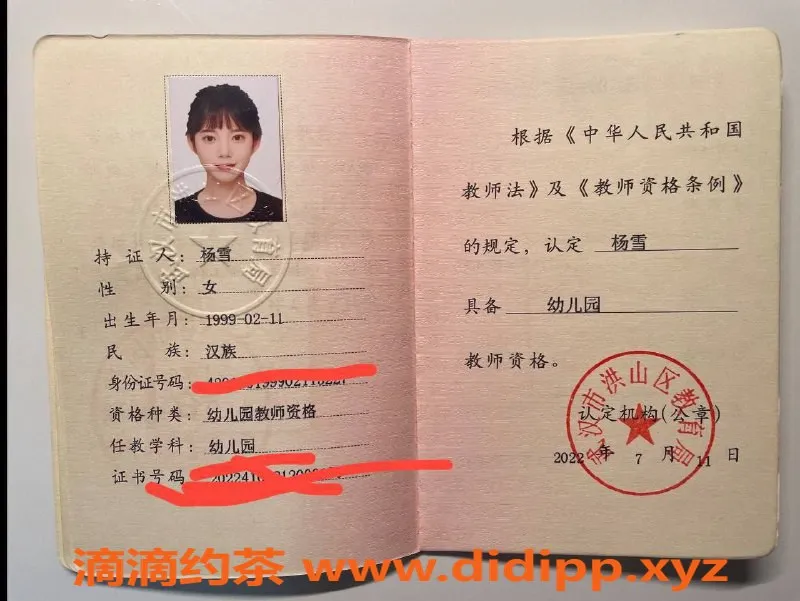 持证人：杨雪
性别：女
出生年月：1999-02-11
民族：汉族
身份证号码：
资格种类：幼儿园教师资格
任教学科：幼儿园
证书号码：
根据《中华人民共和国
教师法》及《教师资格条例》
的规定，认定 杨雪
具备 幼儿园
教师资格。
武汉市洪山区教育局
认定机构(公章)
2022 年 7 月 11 日
滴滴约茶 www.didipp.xyz